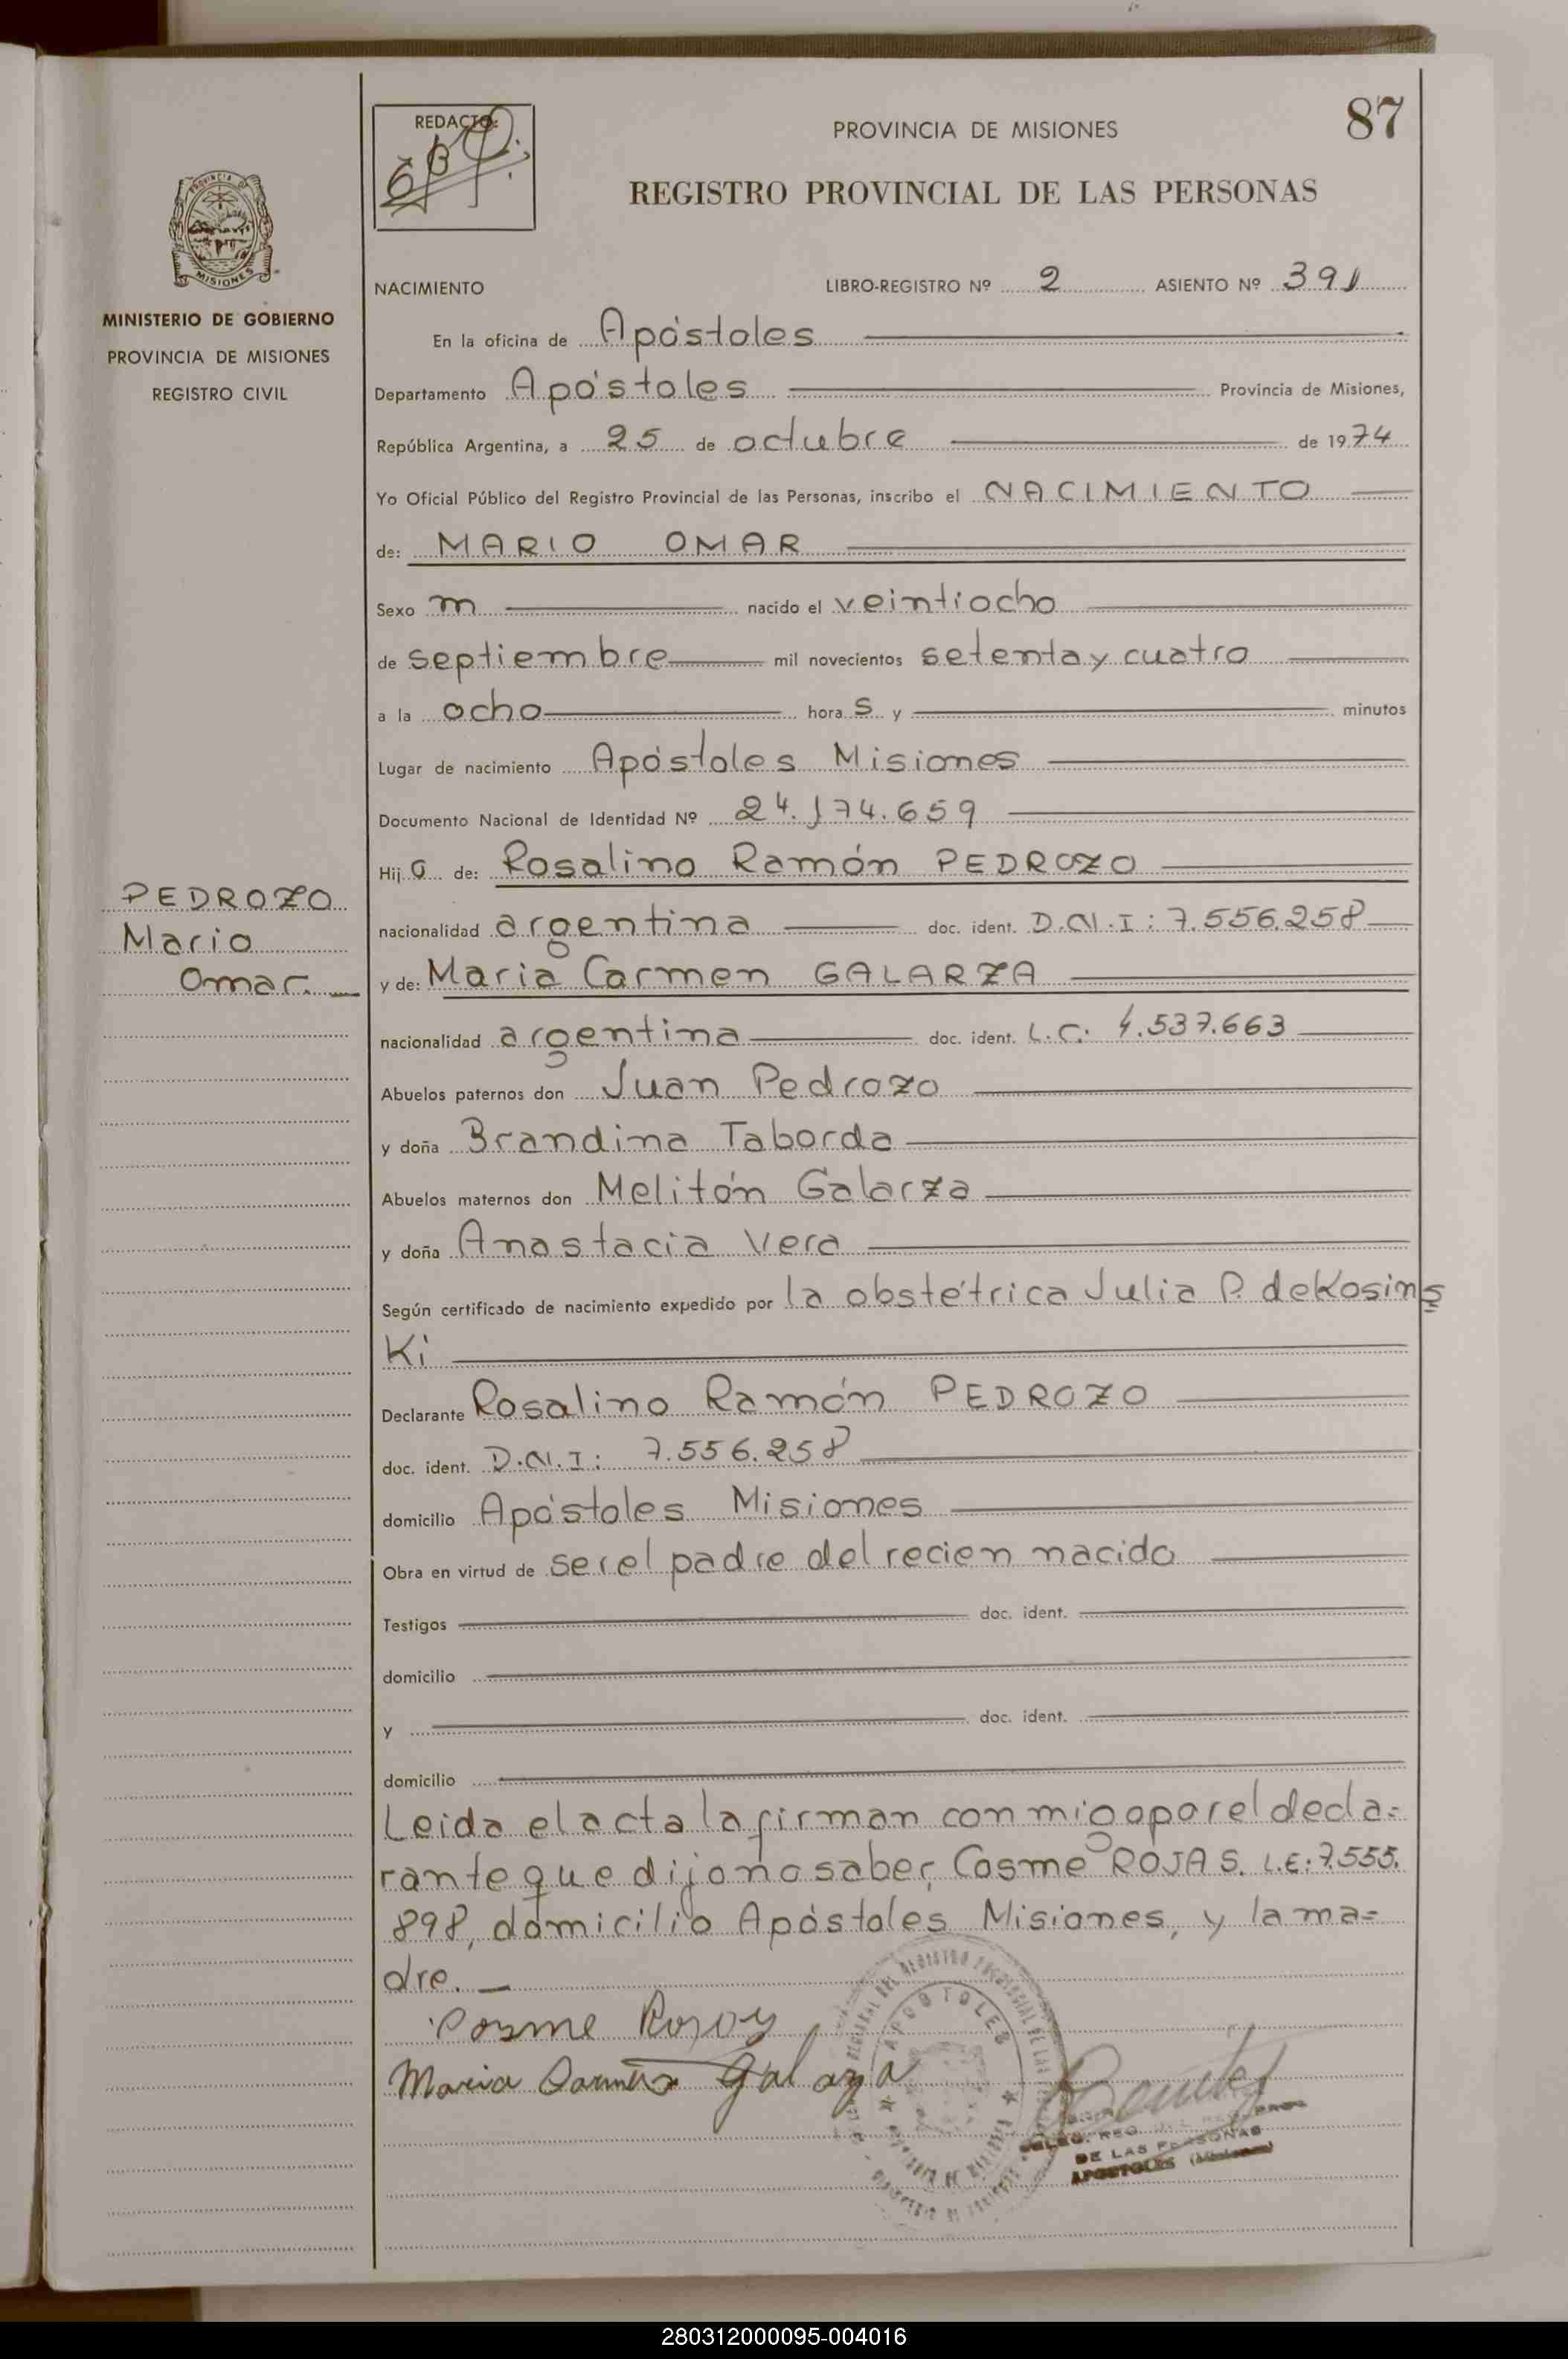 87
REDACTO:
PROVINCIA DE MISIONES
REGISTRO PROVINCIAL DE LAS PERSONAS
PROVINCIA DE
MISIONES
MINISTERIO DE GOBIERNO
PROVINCIA DE MISIONES
REGISTRO CIVIL
NACIMIENTO LIBRO-REGISTRO Nº 2 ASIENTO Nº 391
En la oficina de Apóstoles
Departamento Apóstoles Provincia de Misiones,
República Argentina, a 25 de octubre de 1974
Yo Oficial Público del Registro Provincial de las Personas, inscribo el NACIMIENTO
de: MARIO OMAR
Sexo m nacido el veintiocho
de septiembre mil novecientos setenta y cuatro
a la ocho hora s y minutos
Lugar de nacimiento Apóstoles Misiones
Documento Nacional de Identidad Nº 24.174.659
Hij o de: Rosalino Ramón PEDROZO
PEDROZO
Mario
Omar.
nacionalidad argentina doc. ident. D.N.I: 7.556.258
y de: Maria Carmen GALARZA
nacionalidad argentina doc. ident. L.C: 4.537.663
Abuelos paternos don Juan Pedrozo
y doña Brandina Taborda
Abuelos maternos don Melitón Galarza
y doña Anastacia Vera
Según certificado de nacimiento expedido por la obstétrica Julia P. de Kosins
Ki
Declarante Rosalino Ramón PEDROZO
doc. ident. D.N.I: 7.556.258
domicilio Apóstoles Misiones
Obra en virtud de ser el padre del recien nacido
Testigos doc. ident.
domicilio
y doc. ident.
domicilio
Leida el acta la firman conmigo por el decla=
rante que dijo no saber, Cosme ROJAS. L.E: 7.555.
898, domicilio Apóstoles Misiones, y la ma=
dre.
Cosme Rojas
Maria Carmen Galarza
APOSTOLES
Benitez
DE LAS PERSONAS
APOSTOLES (Misiones)
280312000095-004016